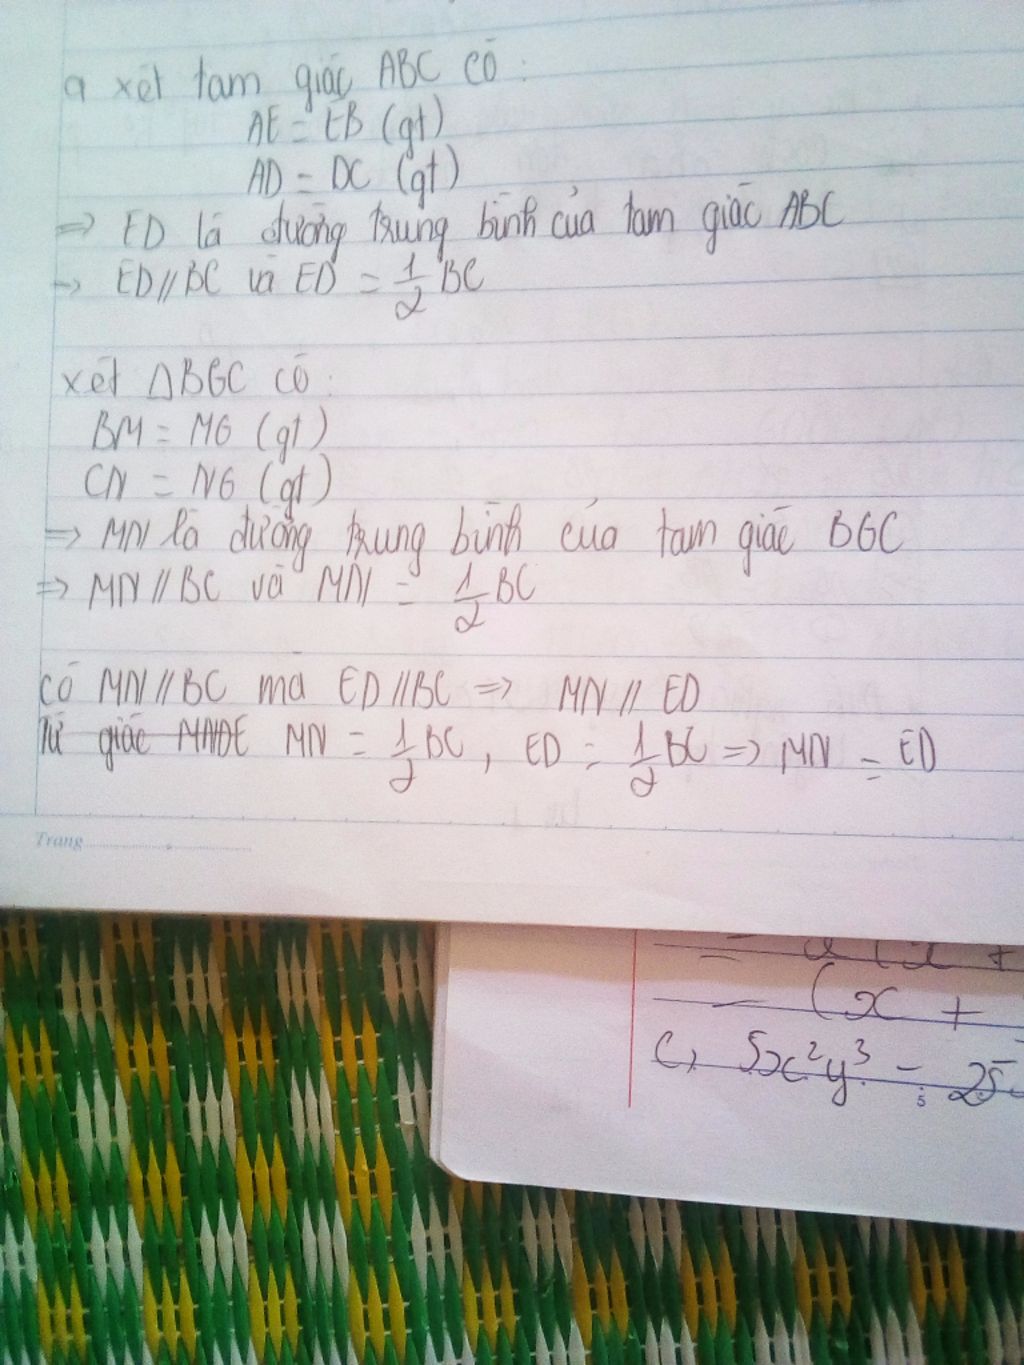 a xét tam giác ABC có :
AE = EB (gt)
AD = DC (gt)
=> ED là đường trung bình của tam giác ABC
-> ED // BC và ED = 1/2 BC
xét △BGC có :
BM = MG (gt)
CN = NG (gt)
=> MN là đường trung bình của tam giác BGC
=> MN // BC và MN = 1/2 BC
có MN // BC mà ED // BC => MN // ED
Tứ giác MNDE MN = 1/2 BC , ED = 1/2 BC => MN = ED
Trang
(x +
c, 5x²y³ - 25